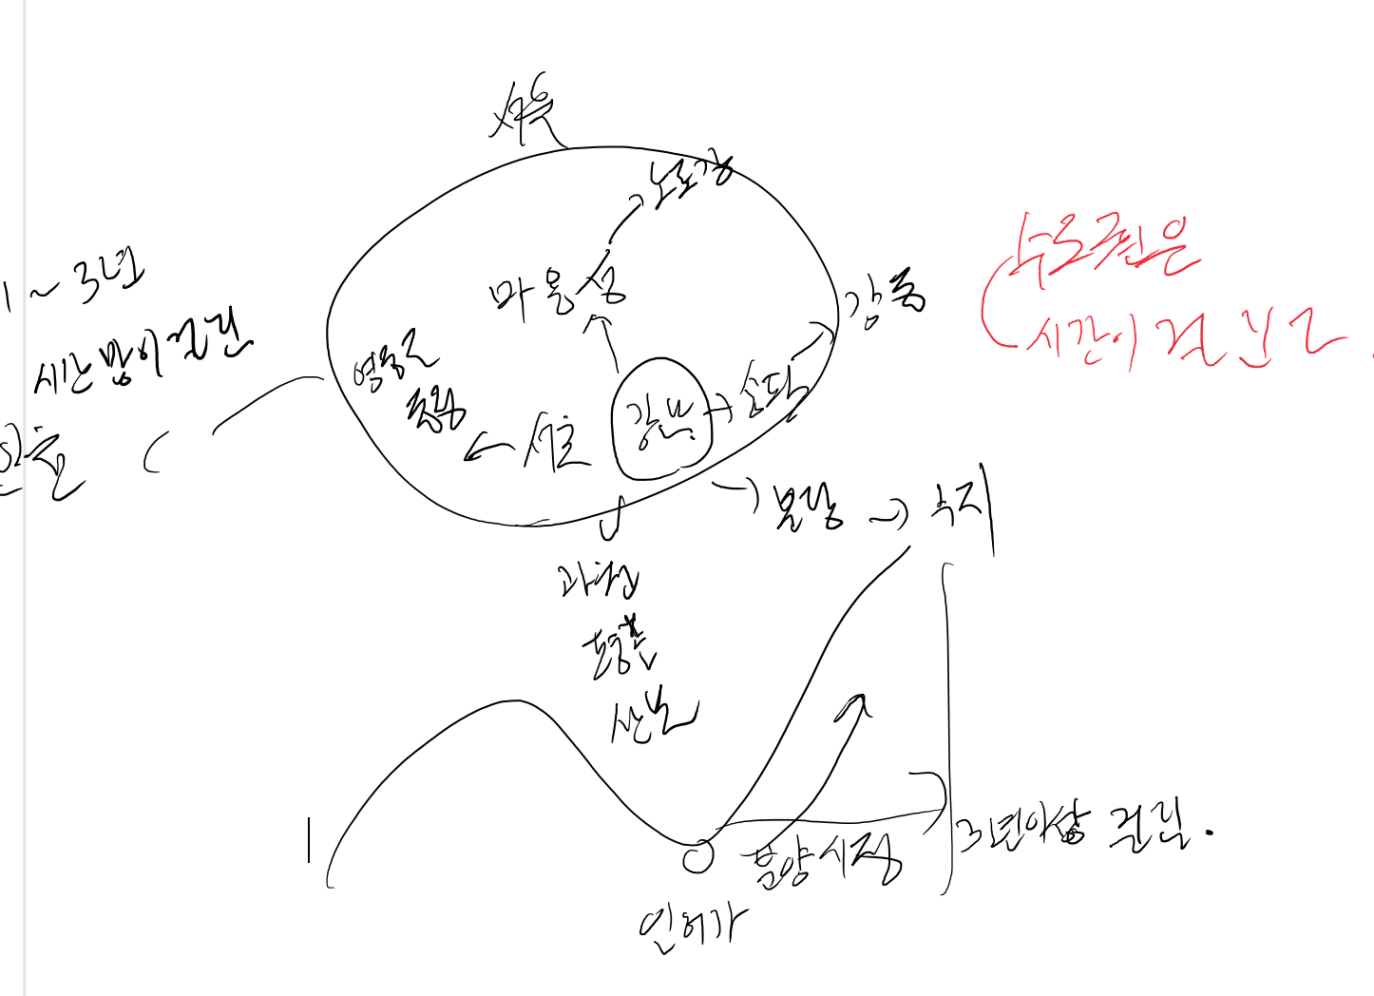 서울
노도강
마용성
1~3년
시간 많이 걸린
강동
수도권은
시간이 걸린다
영등포
서초
강남
송파
분당
수지
과천
평촌
산본
분양시점
3년이상 걸림.
인허가